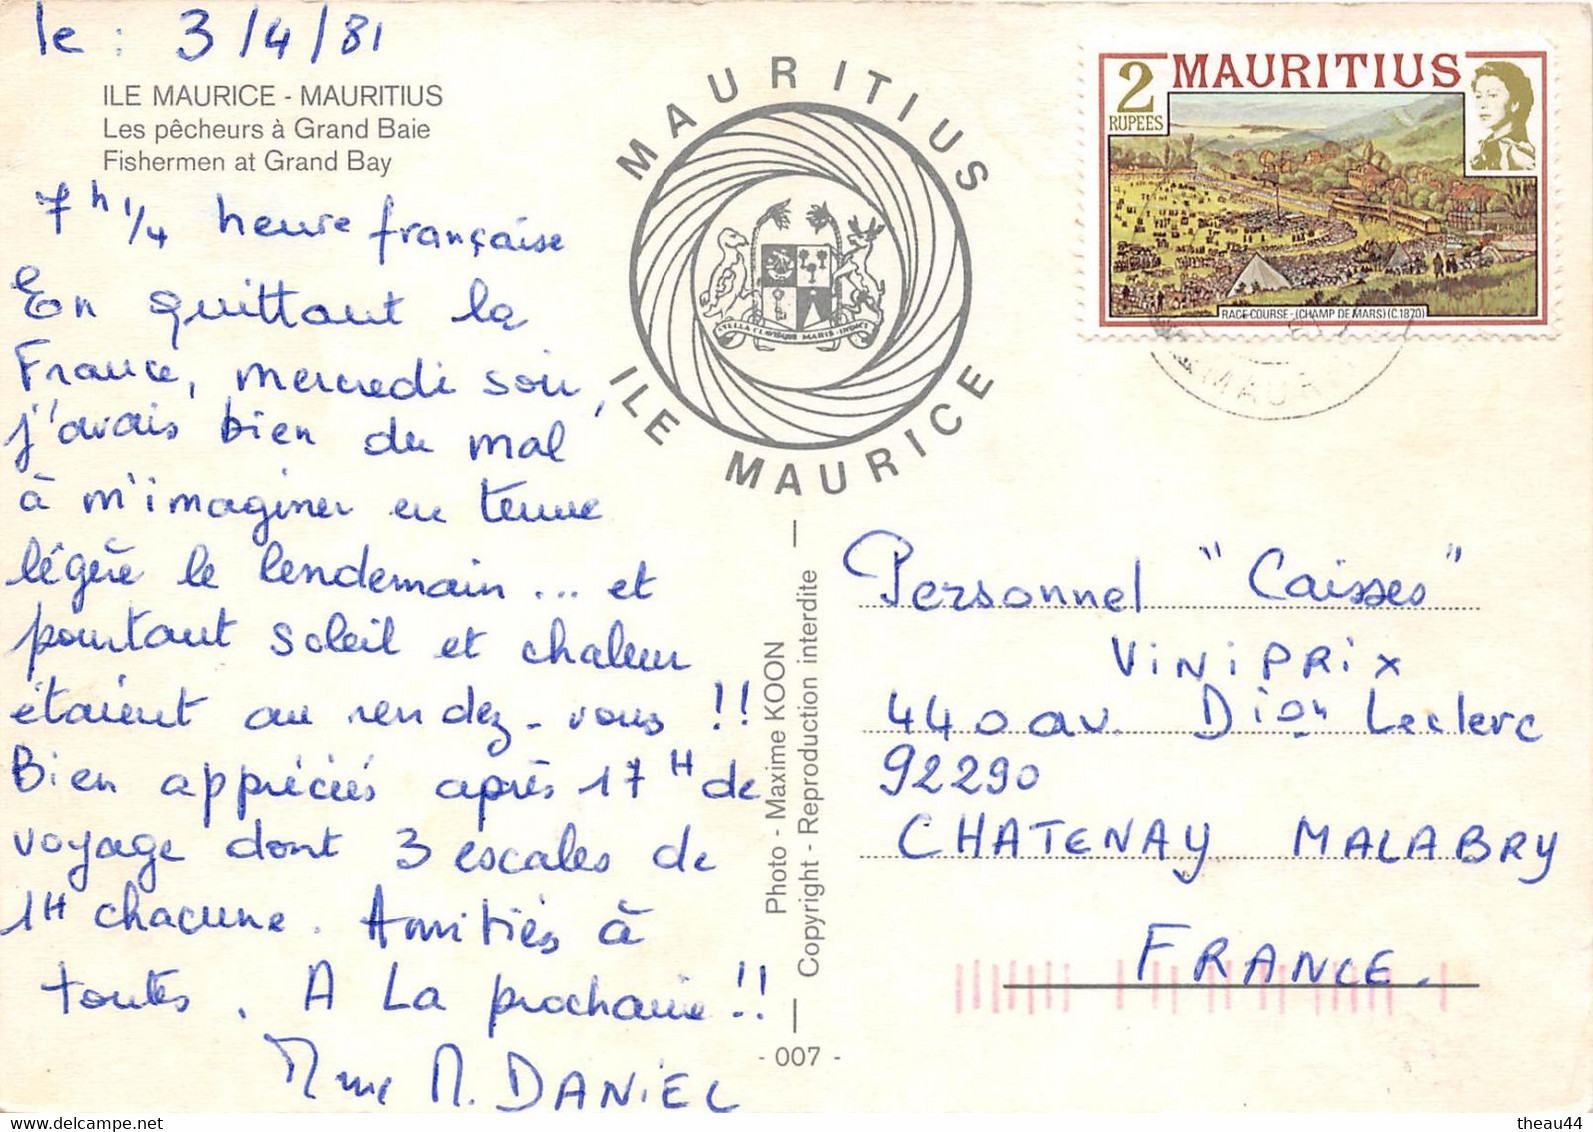 le : 3/4/81
ILE MAURICE - MAURITIUS
Les pêcheurs à Grand Baie
Fishermen at Grand Bay
7 h 1/4 heure française
En quittant la
France, mercredi soir,
j'avais bien du mal
à m'imaginer en tenue
légère le lendemain... et
pourtant soleil et chaleur
étaient au rendez-vous !!
Bien appréciés après 17 H de
voyage dont 3 escales de
1H chacune. Amitiés à
toutes. A La prochaine !!
Mme M. DANIEL
MAURITIUS
STELLA CLAVISQUE MARIS INDICI
ILE MAURICE
Photo - Maxime KOON
Copyright - Reproduction interdite
- 007 -
2
RUPEES
MAURITIUS
RACE-COURSE-(CHAMP DE MARS)(C.1870)
MAUR
Personnel "Caisses"
ViNiPRix
440 av. Dion Leclerc
92290
CHATENAY MALABRY
FRANCE.
theau44